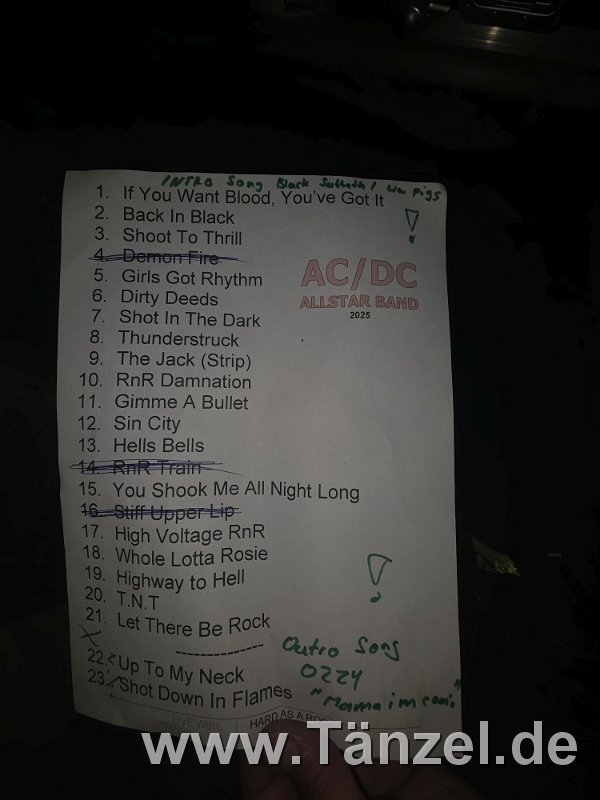 INTRO Song Black Sabbath / War Pigs
1. If You Want Blood, You've Got It
!
2. Back In Black
3. Shoot To Thrill
4. Demon Fire
5. Girls Got Rhythm
AC/DC
6. Dirty Deeds
ALLSTAR BAND
7. Shot In The Dark
2025
8. Thunderstruck
9. The Jack (Strip)
10. RnR Damnation
11. Gimme A Bullet
12. Sin City
13. Hells Bells
14. RnR Train
15. You Shook Me All Night Long
16. Stiff Upper Lip
17. High Voltage RnR
18. Whole Lotta Rosie
!
19. Highway to Hell
20. T.N.T
21. Let There Be Rock
--------------
Outro Song
22. Up To My Neck
OZZY
23. Shot Down In Flames
"Mama im comi"
LIVE WIRE | HARD AS A
www.Tänzel.de